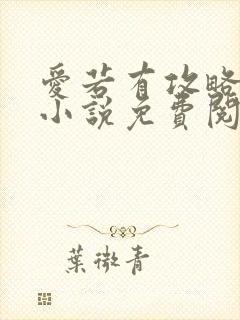 愛若有攻略
小說免費閱
葉微青